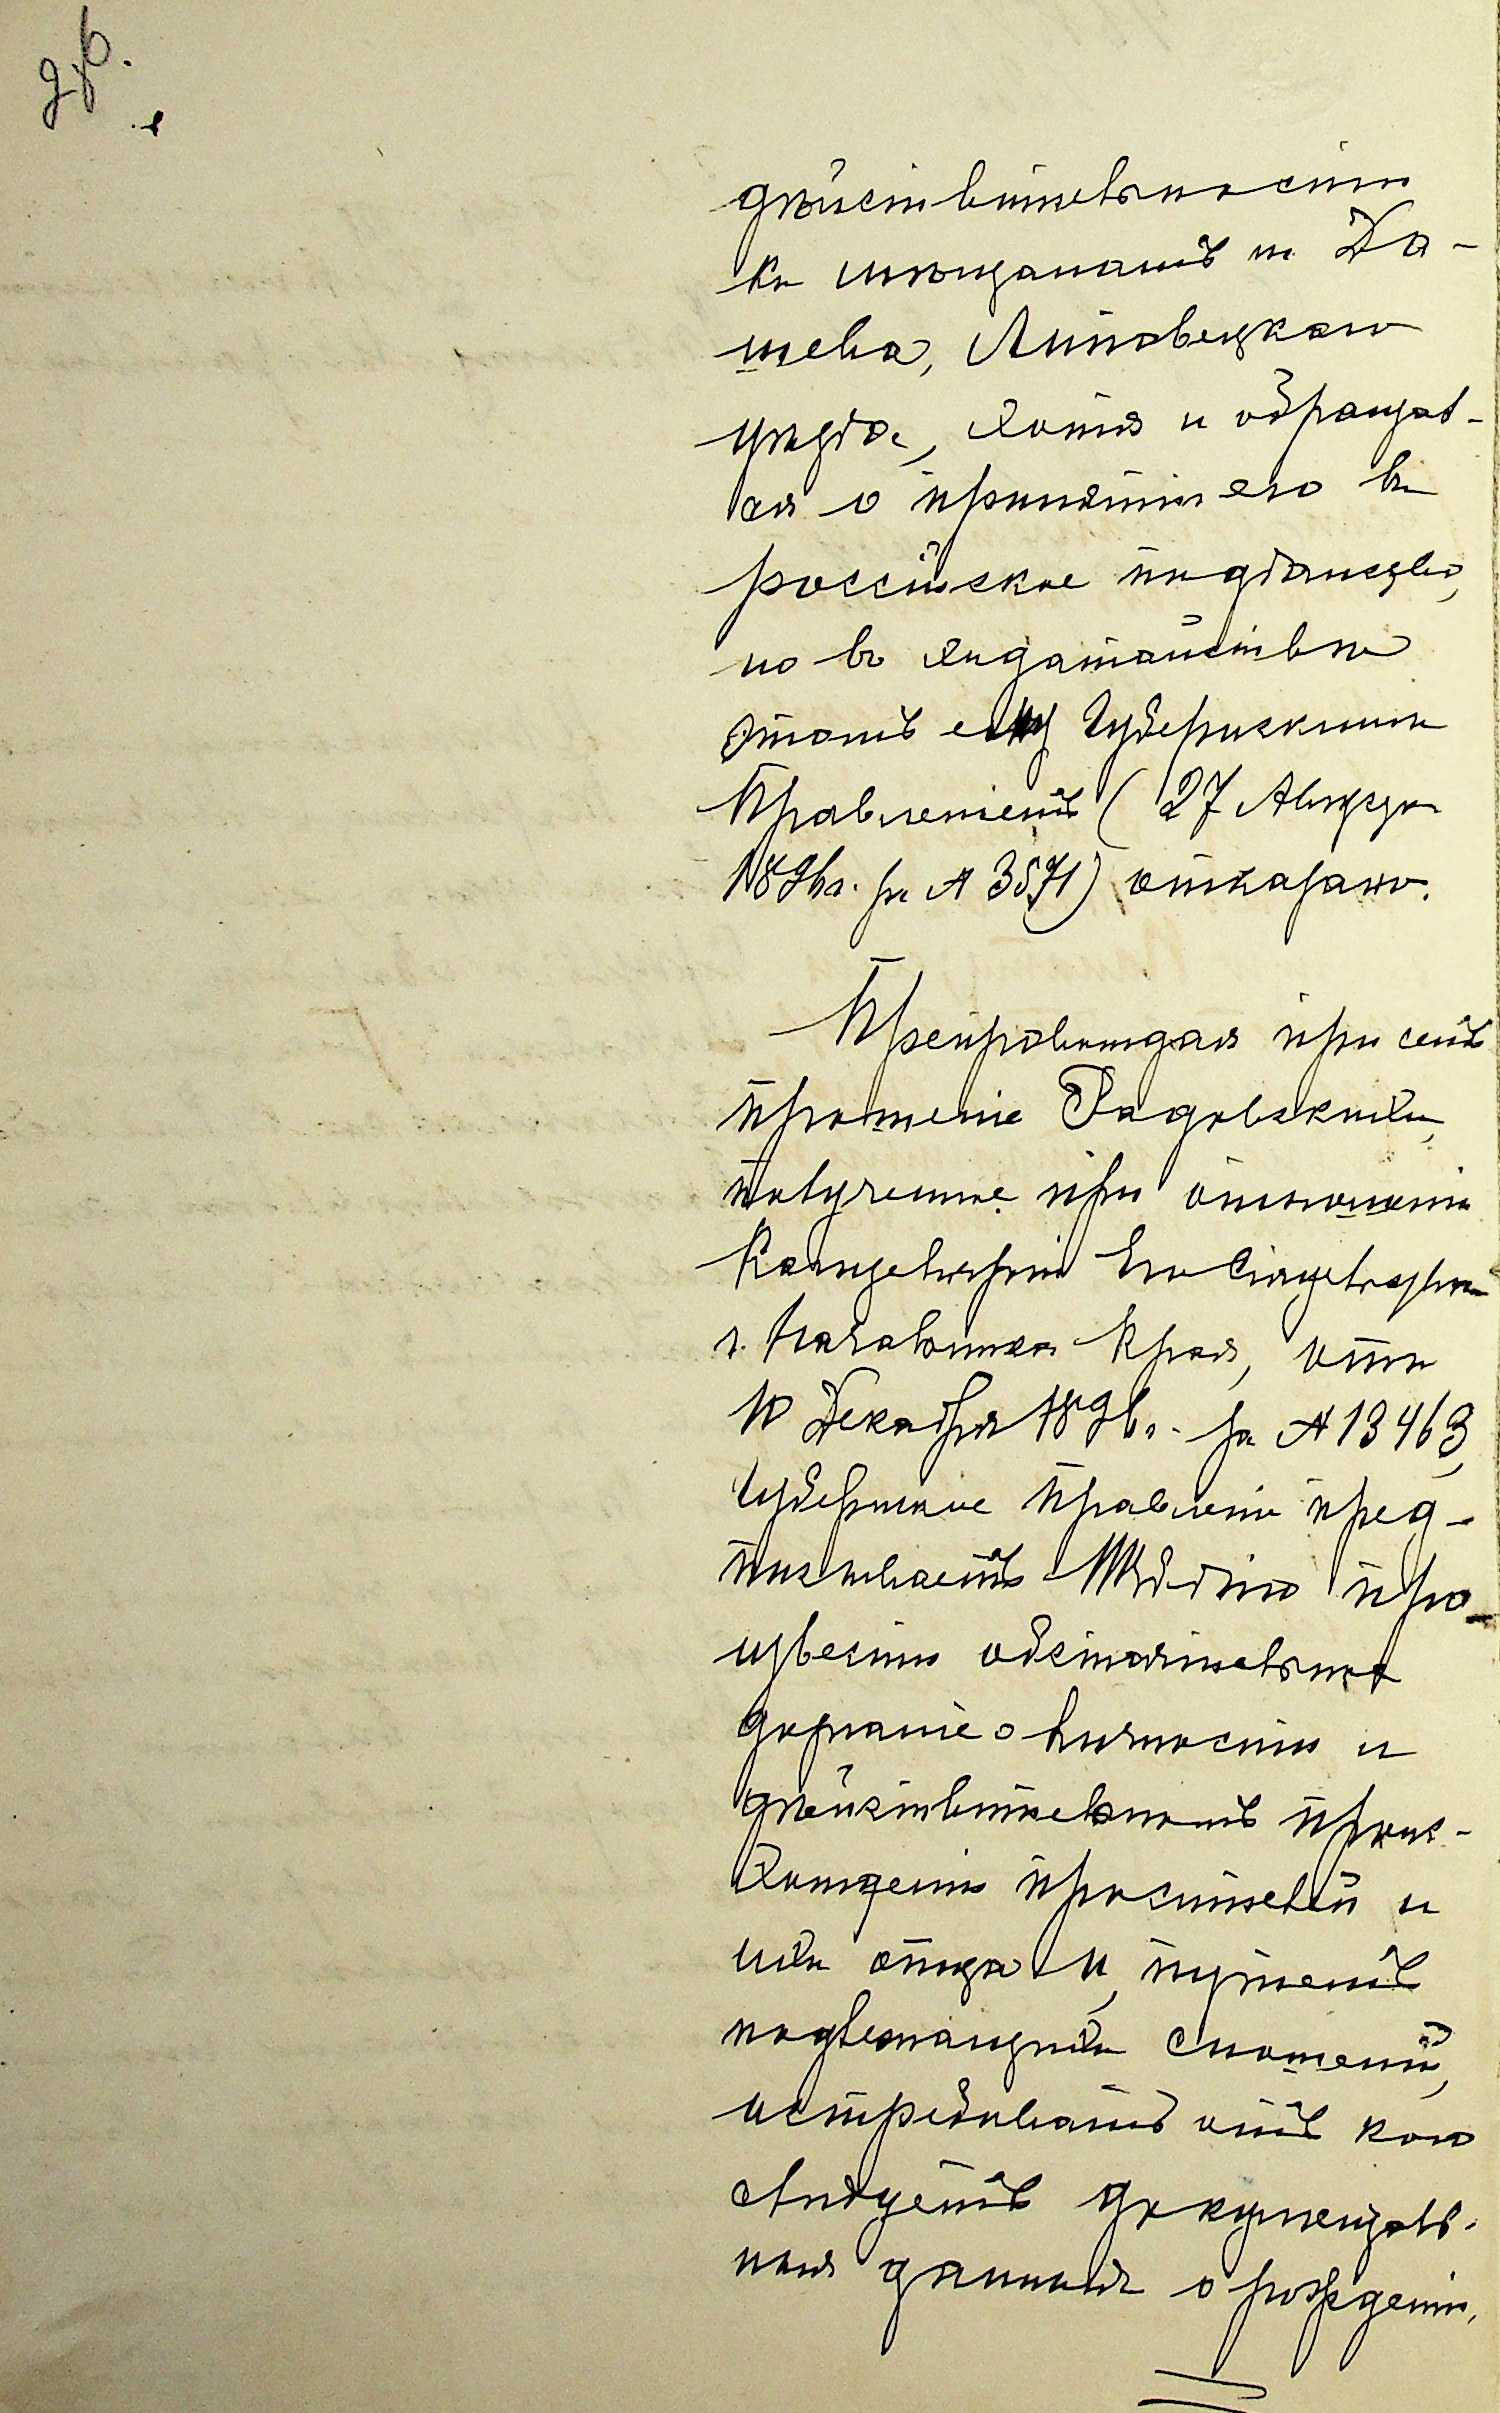 дѣйствительности
къ мѣщанамъ м. Да-
шева, Липовецкаго
уѣзда, хотя и обращал-
ся о принятіи его въ
россійское подданство,
но въ ходатайствѣ
этомъ ему Губернскимъ
Правленіемъ (27 Августа
1896 г. за № 3571) отказано.
Препровождая при семъ
прошеніе Радовскихъ,
полученное при отношеніи
Канцеляріи Его Сіятельства
г. Начальника Края, отъ
10 Декабря 1896 г. за № 13463,
Губернское Правленіе пред-
писываетъ про-
извести обстоятельное
дознаніе о личности и
дѣйствительномъ проис-
хожденіи просителей и
ихъ отца и, путемъ
надлежащихъ сношеній,
истребовать отъ кого
слѣдуетъ документаль-
ныя данныя о рожденіи,